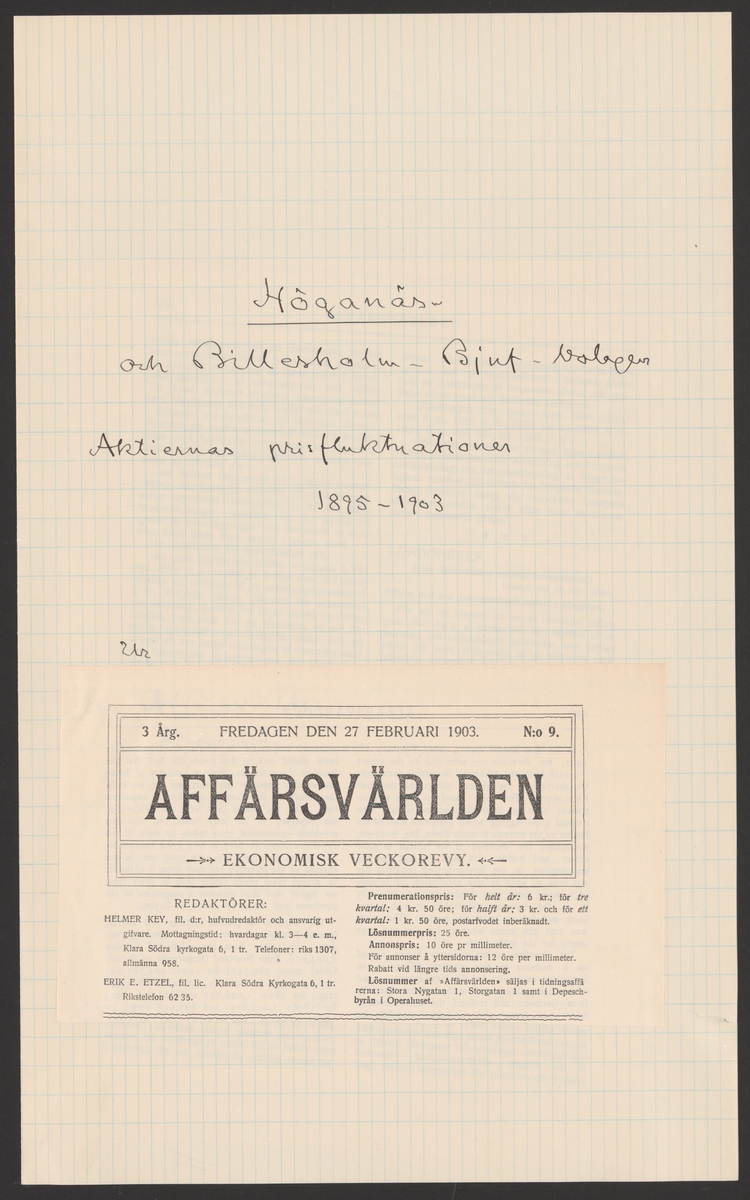 Höganäs-
och Billesholm - Bjuf - bolagen
Aktiernas prisfluktuationer
1895 - 1903
Ur
3 Årg. FREDAGEN DEN 27 FEBRUARI 1903. N:o 9.
AFFÄRSVÄRLDEN
EKONOMISK VECKOREVY.
REDAKTÖRER:
HELMER KEY, fil. d:r, hufvudredaktör och ansvarig ut-
gifvare. Mottagningstid: hvardagar kl. 3—4 e. m.,
Klara Södra kyrkogata 6, 1 tr. Telefoner: riks 1307,
allmänna 958.
ERIK E. ETZEL, fil. lic. Klara Södra Kyrkogata 6, 1 tr.
Rikstelefon 62 35.
Prenumerationspris: För helt år: 6 kr.; för tre
kvartal: 4 kr. 50 öre; för halft år; 3 kr. och för ett
kvartal: 1 kr. 50 öre, postarfvodet inberäknadt.
Lösnummerpris: 25 öre.
Annonspris: 10 öre pr millimeter.
För annonser å yttersidorna: 12 öre per millimeter.
Rabatt vid längre tids annonsering.
Lösnummer af »Affärsvärlden» säljas i tidningsaffä
rerna: Stora Nygatan 1, Storgatan 1 samt i Depesch-
byrån i Operahuset.